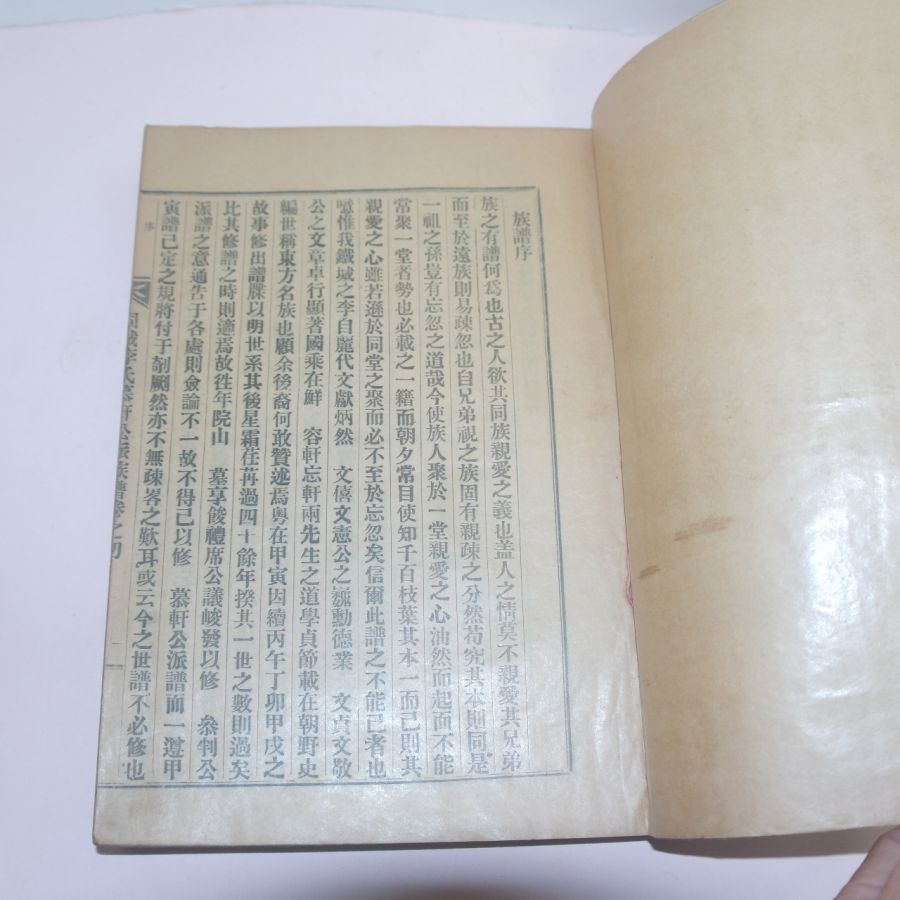 族譜序
族之有譜何爲也古之人欲其同族親愛之義也盖人之情莫不親愛其兄弟
而至於遠族則易疎忽也自兄弟視之族固有親疎之分然苟究其本則同是
一祖之孫豈有忘忽之道哉今使族人聚於一堂親愛之心油然而起而不能
常聚一堂者勢也必載之一籍而朝夕常目使知千百枝葉其本一而已則其
親愛之心雖若遜於同堂之聚而必不至於忘忽矣信爾此譜之不能已者也
噫惟我鐵城之李自麗代文獻炳然 文僖文憲公之巍勳德業 文貞文敬
公之文章卓行顯著國乘在鮮 容軒忘軒兩先生之道學貞節載在朝野史
編世稱東方名族也顧余後裔何敢贊述焉粤在甲寅因續丙午丁卯甲戌之
故事修出譜牒以明世系其後星霜荏苒過四十餘年揆其一世之數則過矣
比其修譜之時則適焉故徃年院山 墓享餕禮席公議峻發以修 叅判公
派譜之意通告于各處則僉論不一故不得已以修 慕軒公派譜而一遵甲
寅譜已定之規將付于剞劂然亦不無疎畧之歎耳或云今之世譜不必修也
固城李氏慕軒公派族譜卷之初
序
一